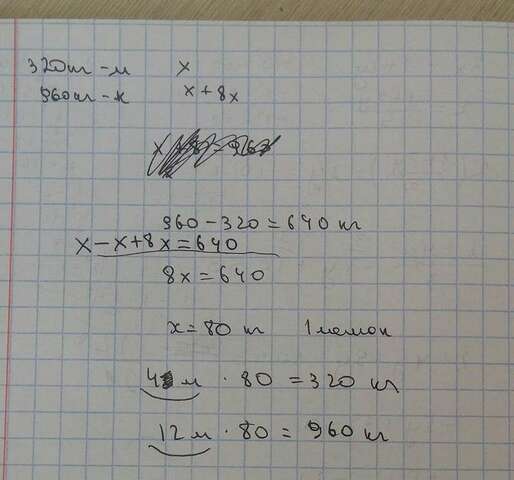 320кг - м х
960кг - к х + 8х
960 - 320 = 640 кг
х - х + 8х = 640
8х = 640
х = 80 кг 1 мешок
4 м · 80 = 320 кг
12 м · 80 = 960 кг